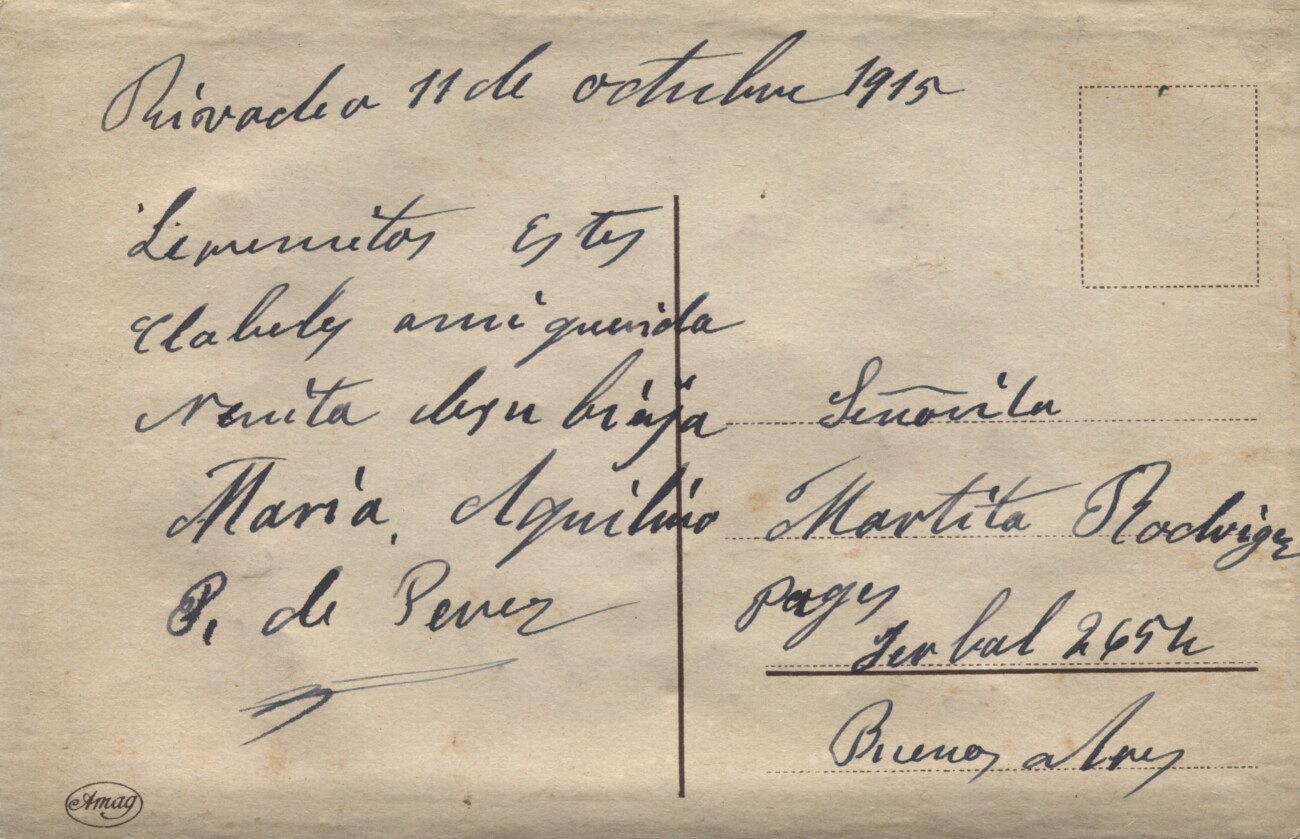 Rivadeo 11 de octubre 1915
Estes
Clabeles a mi querida
Nenita de su bieja
María, Aquilino
P. de Perez
Señorita
Martita Rodrigez
Pages
Serbal 2654
Buenos Aires
Amag